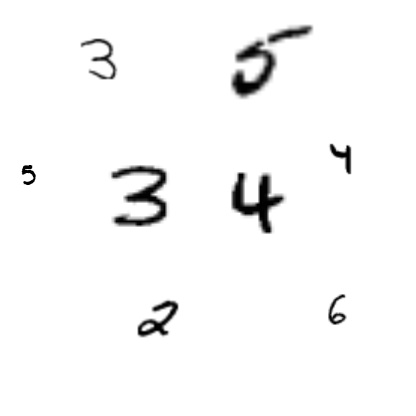 3 5
5 3 4 4
2 6